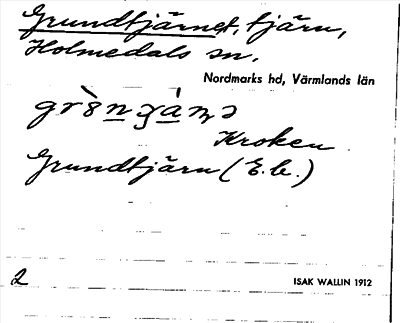 Grundtjärnet, tjärn,
Holmedals sn.
Nordmarks hd, Värmlands län
Kroken
Grundtjärn (E.b.)
2
ISAK WALLIN 1912